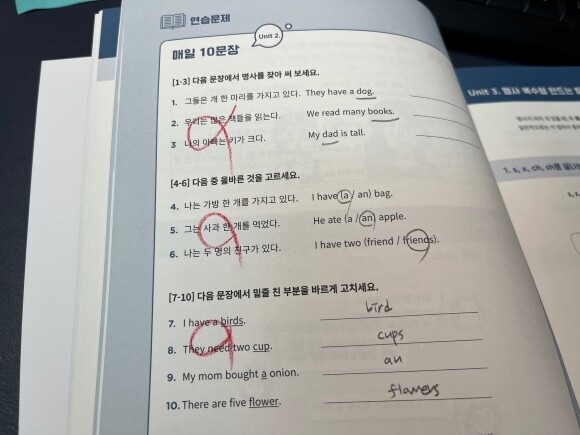 연습문제
Unit 2.
매일 10문장
[1-3] 다음 문장에서 명사를 찾아 써 보세요.
1. 그들은 개 한 마리를 가지고 있다. They have a dog.
2. 우리는 많은 책들을 읽는다. We read many books.
3 나의 아빠는 키가 크다. My dad is tall.
[4-6] 다음 중 올바른 것을 고르세요.
4. 나는 가방 한 개를 가지고 있다. I have (a / an) bag.
5. 그는 사과 한 개를 먹었다. He ate (a / an) apple.
6. 나는 두 명의 친구가 있다. I have two (friend / friends).
[7-10] 다음 문장에서 밑줄 친 부분을 바르게 고치세요.
7. I have a birds. bird
8. They need two cup. cups
9. My mom bought a onion. an
10. There are five flower. flowers
Unit 3. 명사 복수형 만드는
1. s, x, ch, sh로 끝나는
s, x,